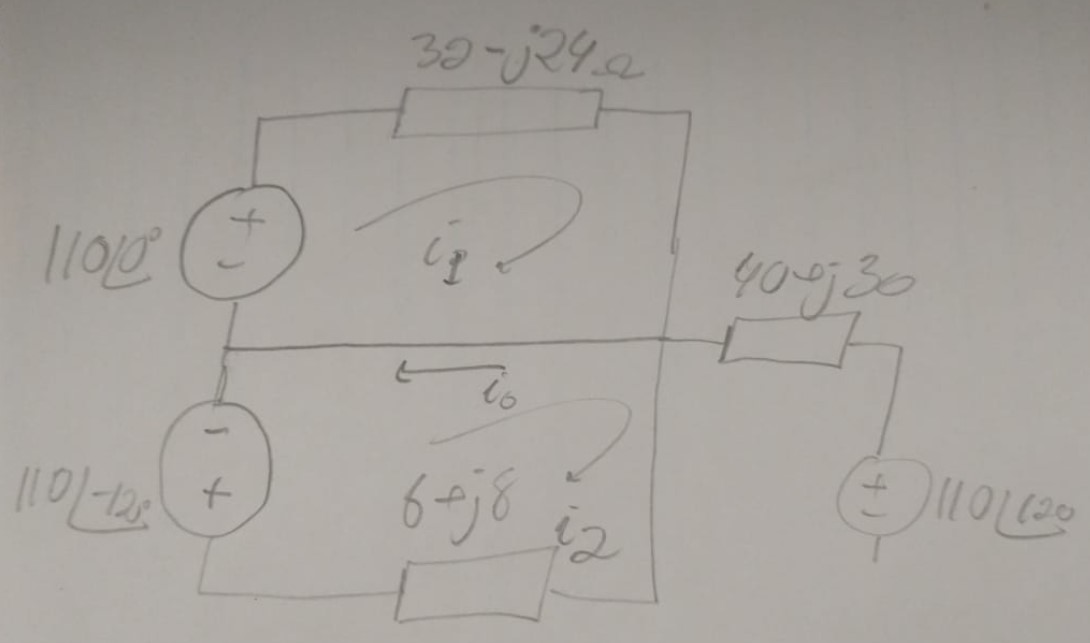 32-j24Ω
+
110∠0°
-
i1
40+j30
i0
-
110∠-120
+
6+j8
i2
+
-
110∠120